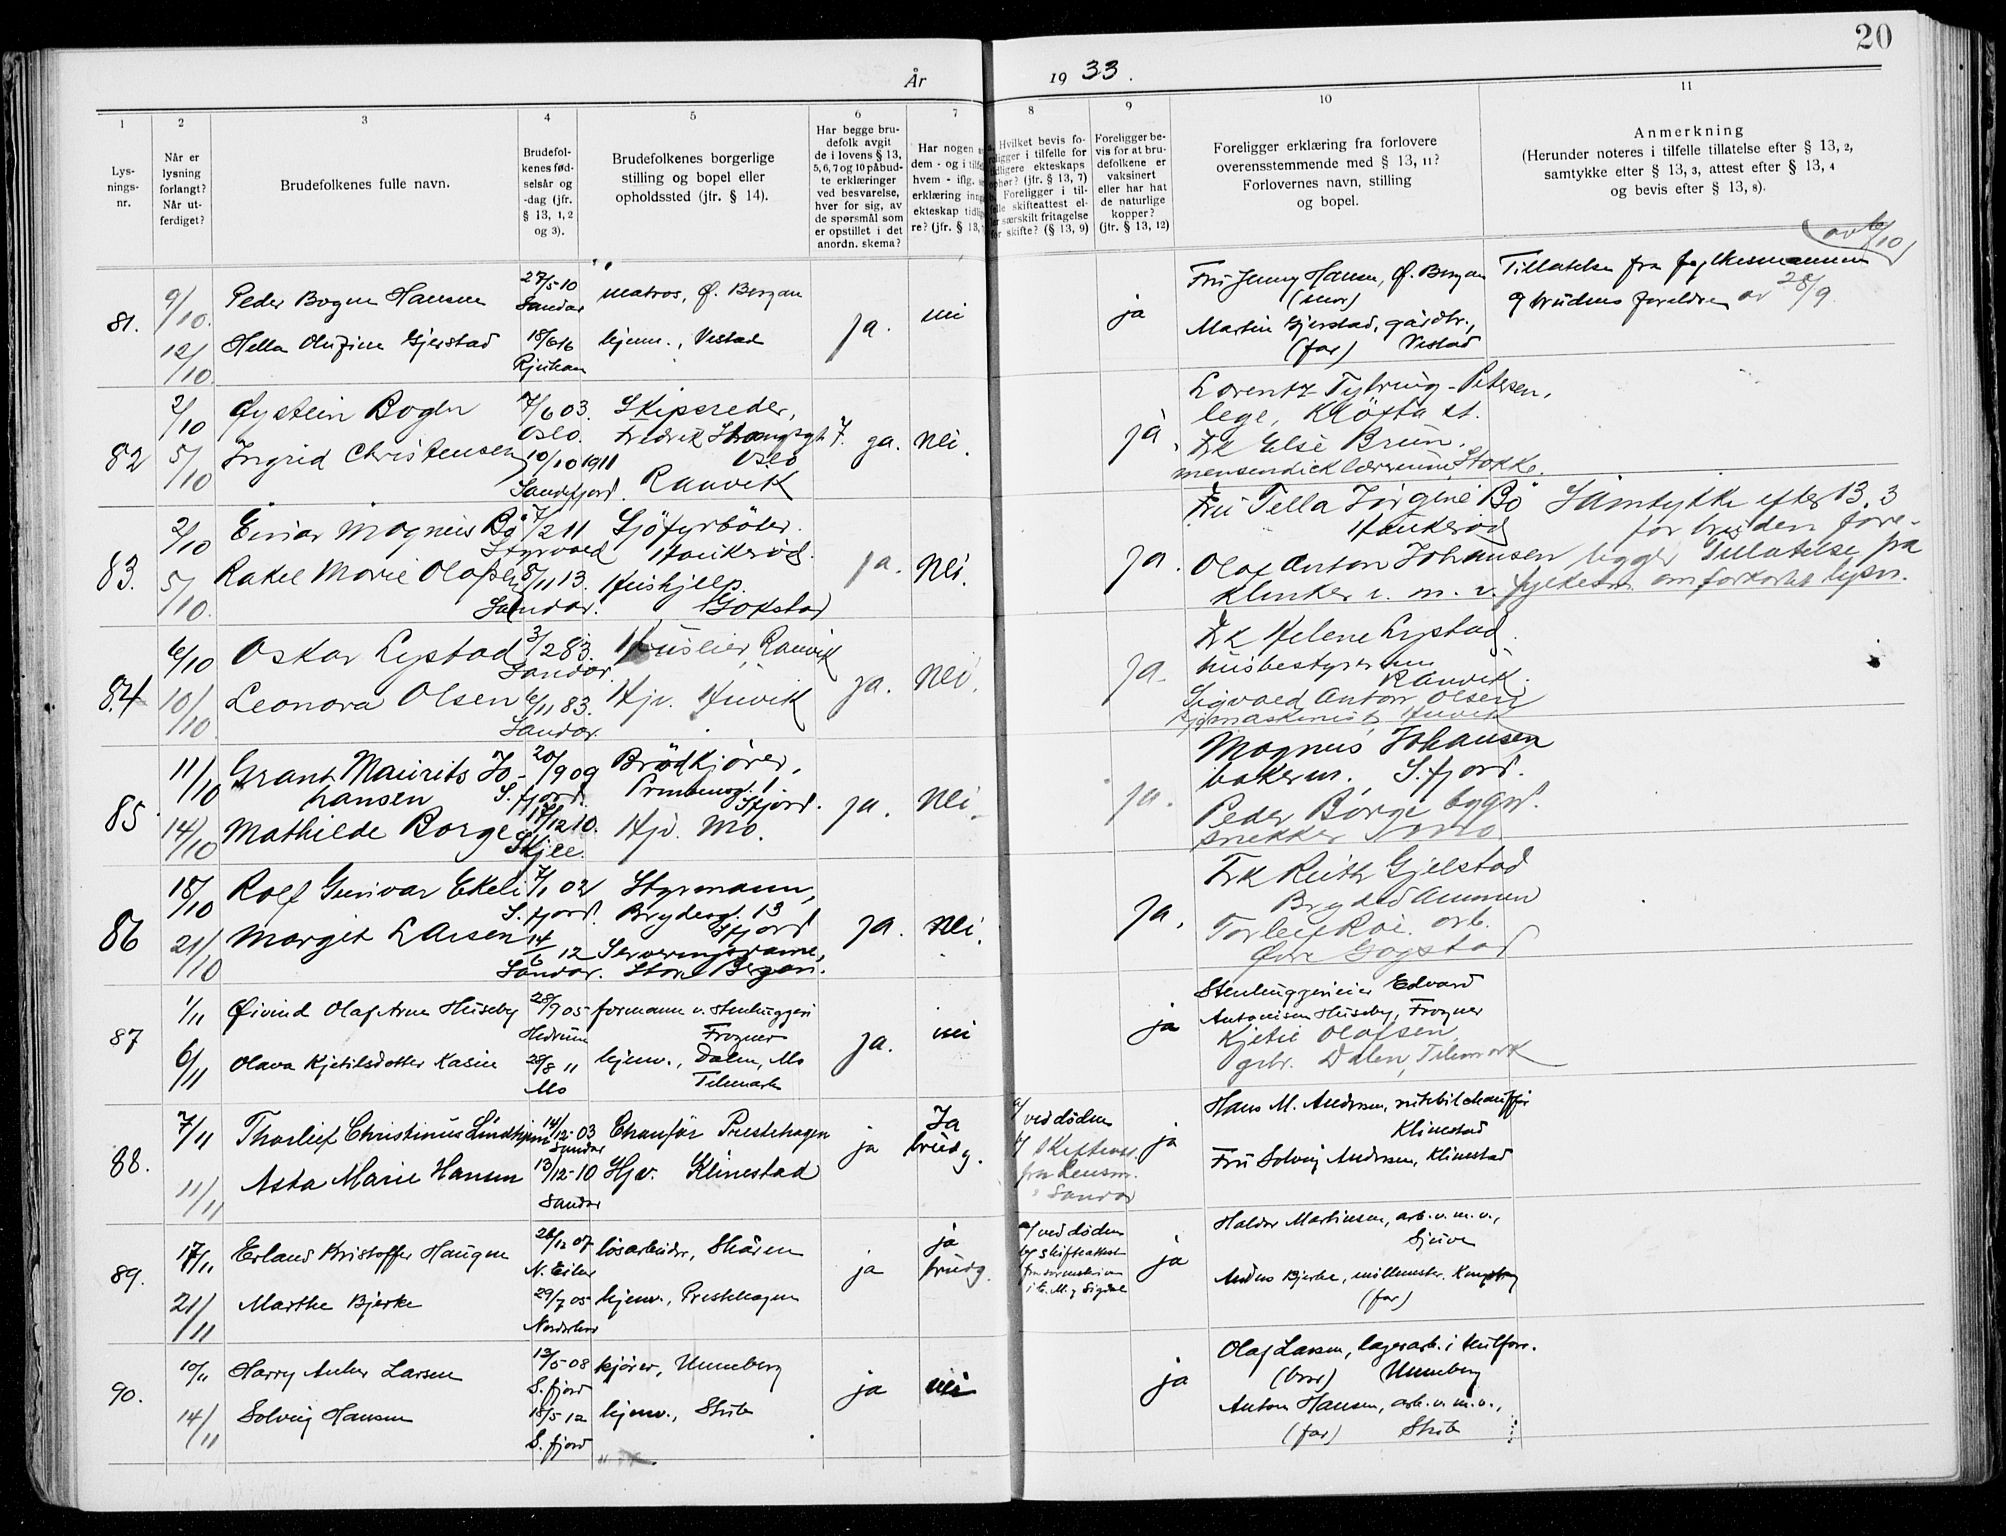 20
År 1933.
1 2 3 4 5 6 7 8 9 10 11
Lys-
nings-
nr.
Når er
lysning
forlangt?
Når ut-
ferdiget?
Brudefolkenes fulle navn.
Brudefol-
kenes fød-
selsår og
-dag (jfr.
§ 13, 1, 2
og 3).
Brudefolkenes borgerlige
stilling og bopel eller
opholdssted (jfr. § 14).
Har begge bru-
defolk avgit
de i lovens § 13,
5, 6, 7 og 10 påbud-
te erklæringer
ved besvarelse,
hver for sig, av
de spørsmål som
er opstillet i det
anordn. skema?
Har nogen
dem - og i
hvem - iflg.
erklæring
ekteskap
re? (jfr. § 13,
Hvilket bevis fo-
religger i tilfelle for
tidligere ekteskaps
ophør? (jfr. § 13, 7)
Foreligger i til-
felle skifteattest el-
ler særskilt fritagelse
for skifte? (§ 13, 9)
Foreligger be-
vis for at bru-
defolkene er
vaksinert
eller har hat
de naturlige
kopper?
(jfr. § 13, 12)
Foreligger erklæring fra forlovere
overensstemmende med § 13, 11?
Forlovernes navn, stilling
og bopel.
Anmerkning
(Herunder noteres i tilfelle tillatelse efter § 13, 2,
samtykke efter § 13, 3, attest efter § 13, 4
og bevis efter § 13, 8).
81.
9/10.
12/10.
Peder Bogen Hansen
27/5-10
Sandar
matros, Ø. Bergan
Hella Olufine Gjerstad
18/6 16
Rjukan
hjemv., Vestad
ja.
nei
ja
Fru Jenny Hansen, Ø. Bergan
(mor)
Martin Gjerstad, gårdbr.,
(far) Vestad
Tillatelse fra fylkesmannen
av 6/10
og brudens foreldre av 28/9.
82
2/10
5/10
Øystein Bogen
7/6 03.
Oslo.
Skipsreder,
Fredrik Stangsgt 7.
Oslo
Ingrid Christensen
10/10 1911
Sandefjord.
Ranvik
ja.
Nei.
ja
Lorentz Tybring-Petersen,
lege, Kløfta st.
Frk Else Brun,
mensendicklærerinne, Stokke.
83.
2/10
5/10.
Einar Magnus Bø
7/2 11
Styrvold
Sjöfyrböter.
Haukerød.
Rakel Marie Olafsen
8/11 13.
Sandar.
Hushjelp.
Gokstad
ja.
Nei.
ja.
Fru Tella Jørgine Bø
Haukerød
Olaf Anton Johansen
klinker v. m. v.
Samtykke efter 13, 3
for bruden fore-
ligger Tillatelse fra
fylkesm om forkortet lysn.
84
6/10
10/10
Oskar Lystad
3/2 83.
Sandar.
Huseier, Ranvik
Leonora Olsen
6/11 83.
Sandar.
Hjv. Huvik
ja.
Nei.
ja.
Frk Helene Lystad.
husbestyrerinne
Ranvik.
Sigvald Anton Olsen
sjømaskinist, Huvik
85
11/10
14/10
Grant Maurits Jo-
hansen
20/9 09
S.fjord.
Brødkjører,
Prinsensgt. 1
Sfjord.
Mathilde Borge
17/12 10.
Skjee.
Hjv. Mo.
ja.
Nei.
ja.
Magnus Johansen
bakerm. S.fjord.
Peder Borge bygn.
snekker
86
18/10
21/10
Rolf Gunvar Ekeli
7/1 02
S.fjord.
Styrmann,
Brydesgt. 13
Sfjord
Margit Larsen
14/6 12
Sandar.
Serveringsdame,
Store Bergan.
ja.
Nei.
ja.
Frk Ruth Gjelstad
Torleif Roi. arb.
Øvre Gogstad
87
1/11
6/11
Øivind Olaf Arne Huseby
28/9 05
Hedrum
formann v. Stenhuggeri
Frogner
Olava Kjetilsdotter Kasin
28/8 11
Mo
hjemv., Dalen, Mo
Telemark
ja.
nei
ja
Stenhuggerieier Edvard
Antonisen Huseby, Frogner
Kjetil Olafsen
grbr. Dalen, Telemark
88.
7/11
11/11
Thorlief Christinus Lindhjem
14/12-03
Sandar
Chauför Prestehagen
Asta Marie Hansen
13/12-10
Sandar
Hjv. Klinestad
ja
Ja
brudg.
a/ ved döden
b/ Skifteatt.
fra Lensm.
i Sandar
ja
Hans M. Andersen, rutebilchauffør
Klinestad
Fru Solveig Andersen, Klinestad
89.
17/11
21/11
Erland Kristoffer Haugen
26/12 07
N. Eiker
løsarbeider, Skåren
Marthe Bjerke
29/7 05
hjemv., Prestehagen
ja
ja
brudg.
a/ ved döden
b/ skifteattest
fra sorenskriveren
i E. M. og Sigdal
ja
Haldor Martinsen, arb. v. m. v.,
Anders Bjerke, møllemester. Kongsberg
(far)
90.
10/11
14/11
Harry Anker Larsen
13/5-08
S.fjord
kjører, Unneberg
Solveig Hansen
18/5 12
S.fjord
hjemv., Skib
ja
nei
ja
Olaf Larsen, lagerarb. i kulforr.
(bror) Unneberg
Anton Hansen, arb. v. m. v.,
(far) Skib